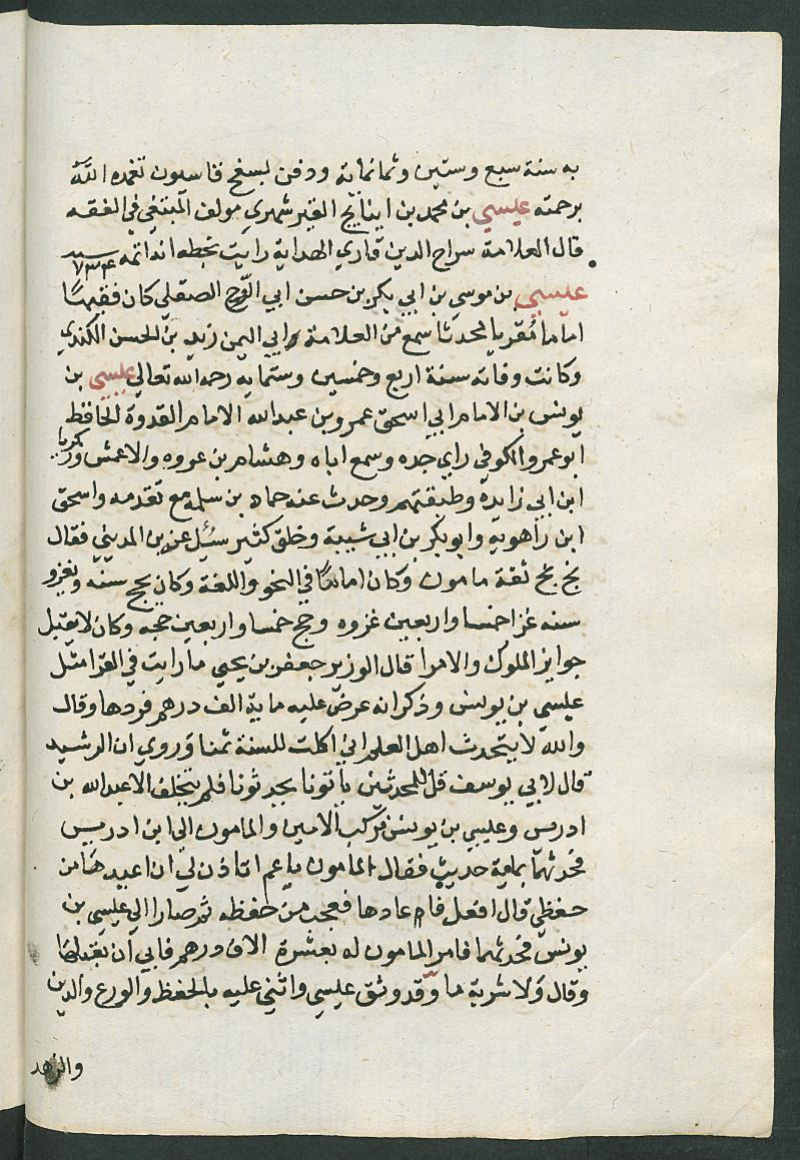 به سنة سبع وستين وثمانمايه ودفن بسفح قاسيون تغمده الله
برحمته عيسي بن محمد بن اينانج القير شهري مولف المبتغي في الفقه
قال العلامة سراج الدين قاري الهداية رايت بخطه انه اتمه سنه ٧٣٤
عيسي بن موسي بن ابي بكر بن حسن ابي الروح الصقلي كان فقيها
اماما مقريا محدثا سمع من العلامة ابي اليمن زيد بن الحسن الكندي
وكانت وفاته سنة اربع وخمسين وستمايه رحمه الله تعالي عيسي بن
يونس بن الامام ابي اسحق عمرو بن عبد الله الامام القدوة الحافظ
ابو عمرو الكوفي راي جده وسمع اباه وهشام بن عروه والاعمش وزكريا
ابن ابي زايدة وطبقتهم وحدث عنه حماد بن سلمه مع تقدمه واسحق
ابن راهويه وابو بكر بن ابي شيبة وخلق كثير سئل عنه بن المديني فقال
بخ بخ ثقة مامون وكان اماما في النحو واللغة وكان يحج سنه ويغزو
سنه غزا خمسا واربعين غزوه وحج خمسا واربعين حجه وكان لا يقبل
جوايز الملوك والامرا قال الوزير جعفر بن يحيي ما رايت في القرا مثل
عيسي بن يونس وذكر انه عرض عليه ماية الف درهم فردها وقال
والله لا يتحدث اهل العلم اني اكلت للسنة ثمنا وروي ان الرشيد
قال لابي يوسف قل للمحدثين ياتونا يحدثونا فلم يتخلف الا عبد الله بن
ادريس وعيسي بن يونس فركب الامين والمامون الي ابن ادريس
فحدثهما بماية حديث فقال المامون يا عم اتاذن لي ان اعيدها من
حفظي قال افعل فاعادها فعجب من حفظه ثم صارا الي عيسي بن
يونس فحدثهما فامر المامون له بعشرة الاف درهم فابي ان يقبلها
وقال ولا شربة ما وقد وثق عيسي واثني عليه بالحفظ والورع والدين
والزهد